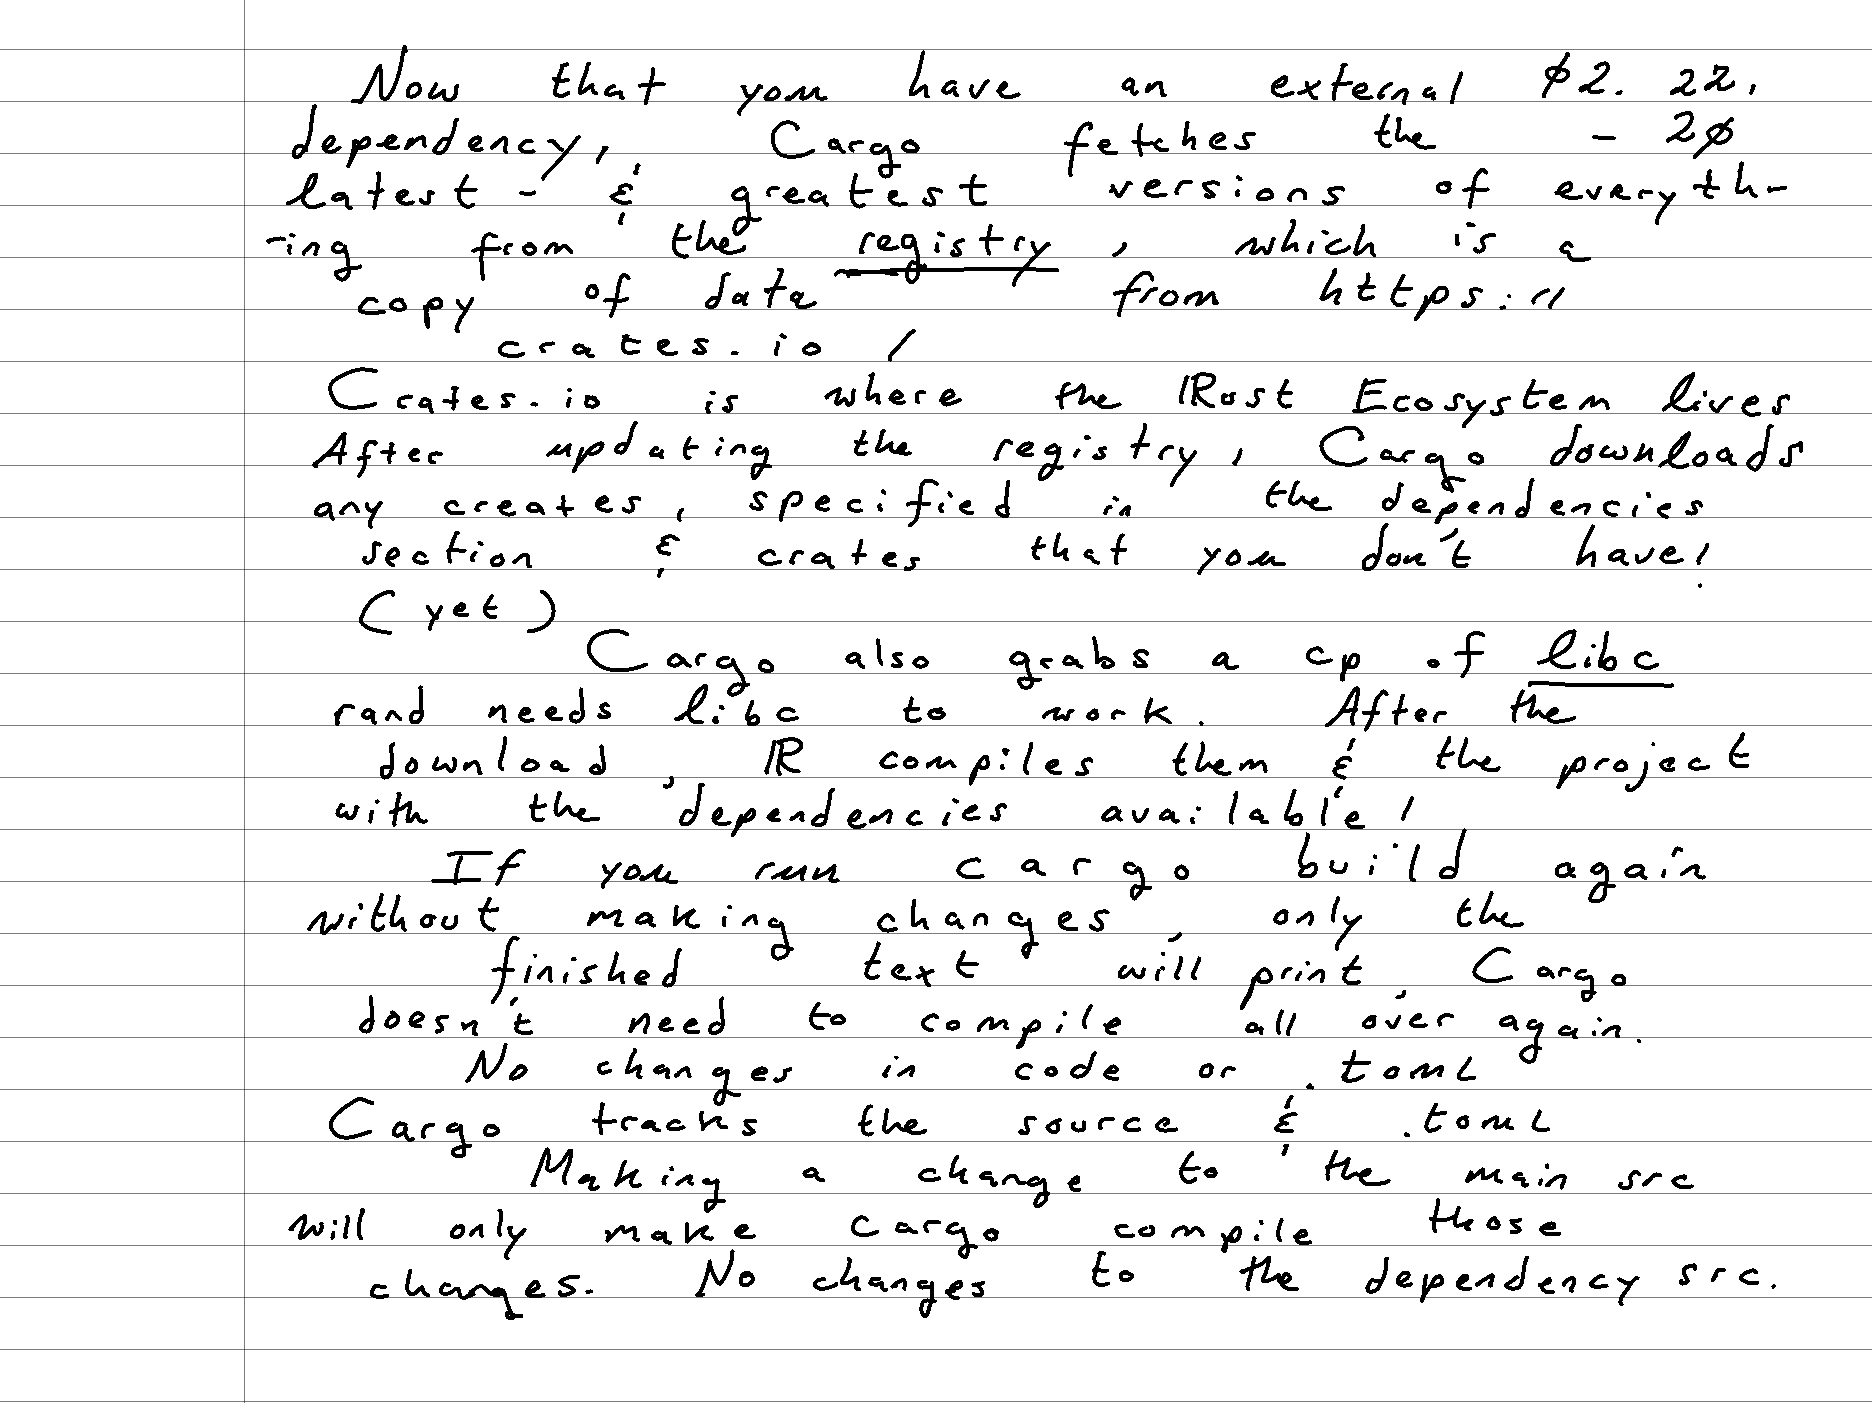 Now that you have an external ø2. 22.
dependency, Cargo fetches the - 2ø
latest - & greatest versions of everyth-
-ing from the registry, which is a
copy of data from https://
crates.io /
Crates.io is where the Rust Ecosystem lives
After updating the registry, Cargo downloads
any creates, specified in the dependencies
section & crates that you don't have!
(yet)
Cargo also grabs a cp of libc
rand needs libc to work. After the
download, R compiles them & the project
with the dependencies available!
If you run cargo build again
without making changes, only the
finished text will print, Cargo
doesn't need to compile all over again.
No changes in code or .tomL
Cargo tracks the source & .tomL
Making a change to the main src
will only make cargo compile those
changes. No changes to the dependency src.